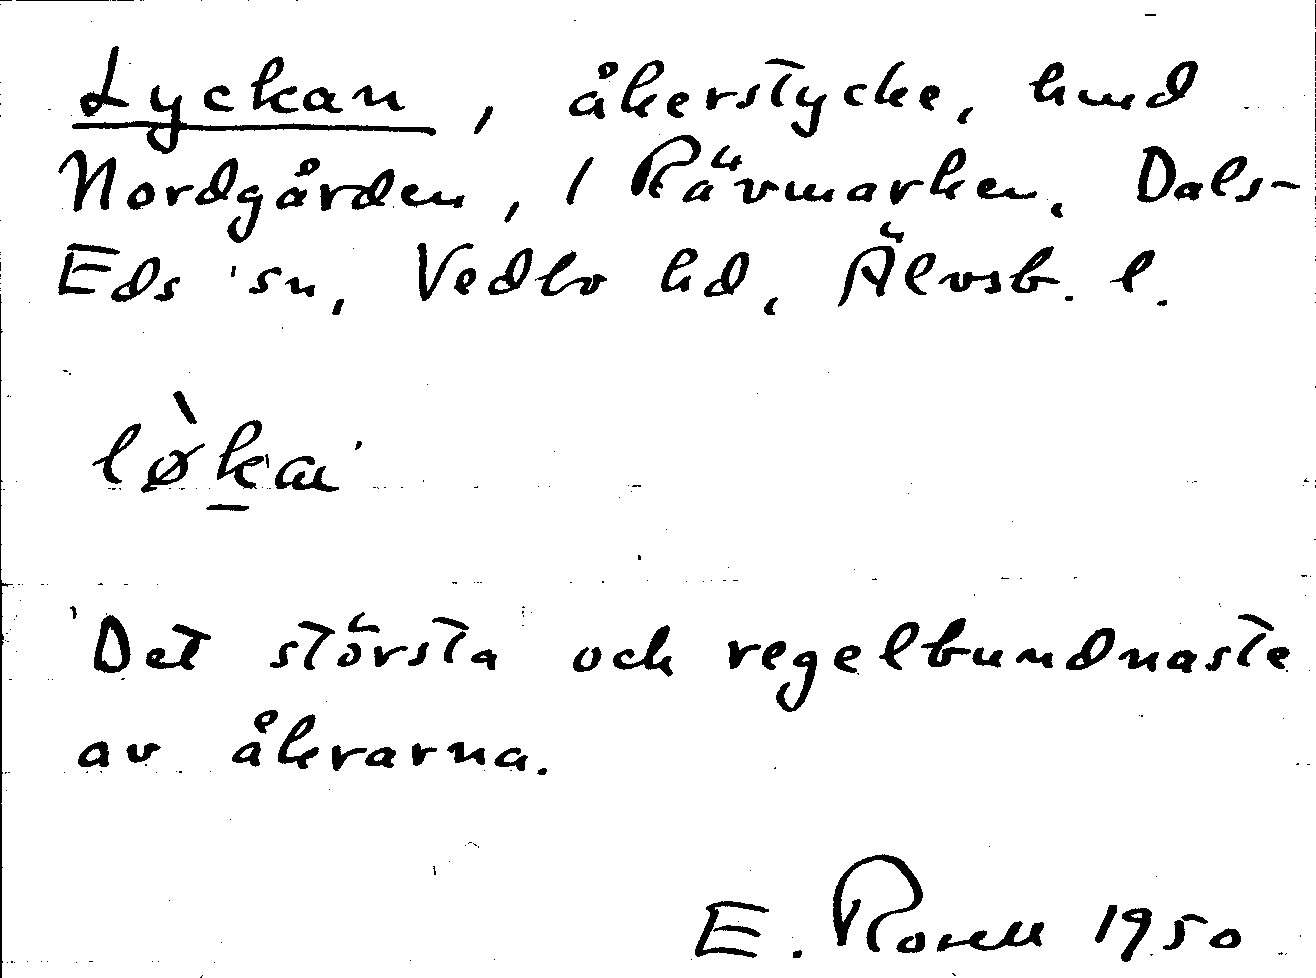 Lyckan, åkerstycke, hmd
Nordgården, 1 Rävmarken, Dals-
Eds sn, Vedbo hd, Älvsb. l.
lø̀k̠a
Det största och regelbundnaste
av åkrarna.
E. Rosell 1950